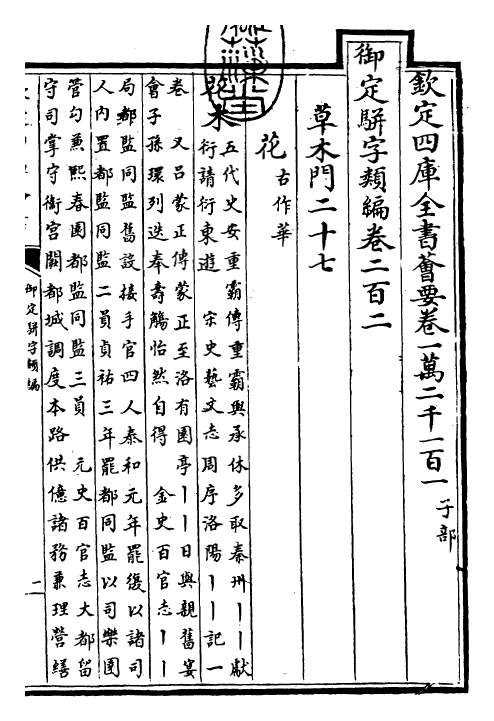 欽定四庫全書薈要卷一萬二千一百一 子部
御定駢字類編卷二百二
草木門二十七
花 古作華
花木 五代史安重霸傳重霸與承休多取秦州丨丨獻
衍請衍東遊 宋史藝文志周序洛陽丨丨記一
卷 又呂蒙正傳蒙正至洛有園亭丨丨日與親舊宴
會子孫環列迭奉壽觴怡然自得 金史百官志丨丨
局都監同監舊設接手官四人泰和元年罷復以諸司
人內置都監同監二員貞祐三年罷都同監以司樂園
管勾兼熙春園都監同監三員 元史百官志大都留
守司掌守衛宮闕都城調度本路供億諸務兼理營繕
御定駢字類編